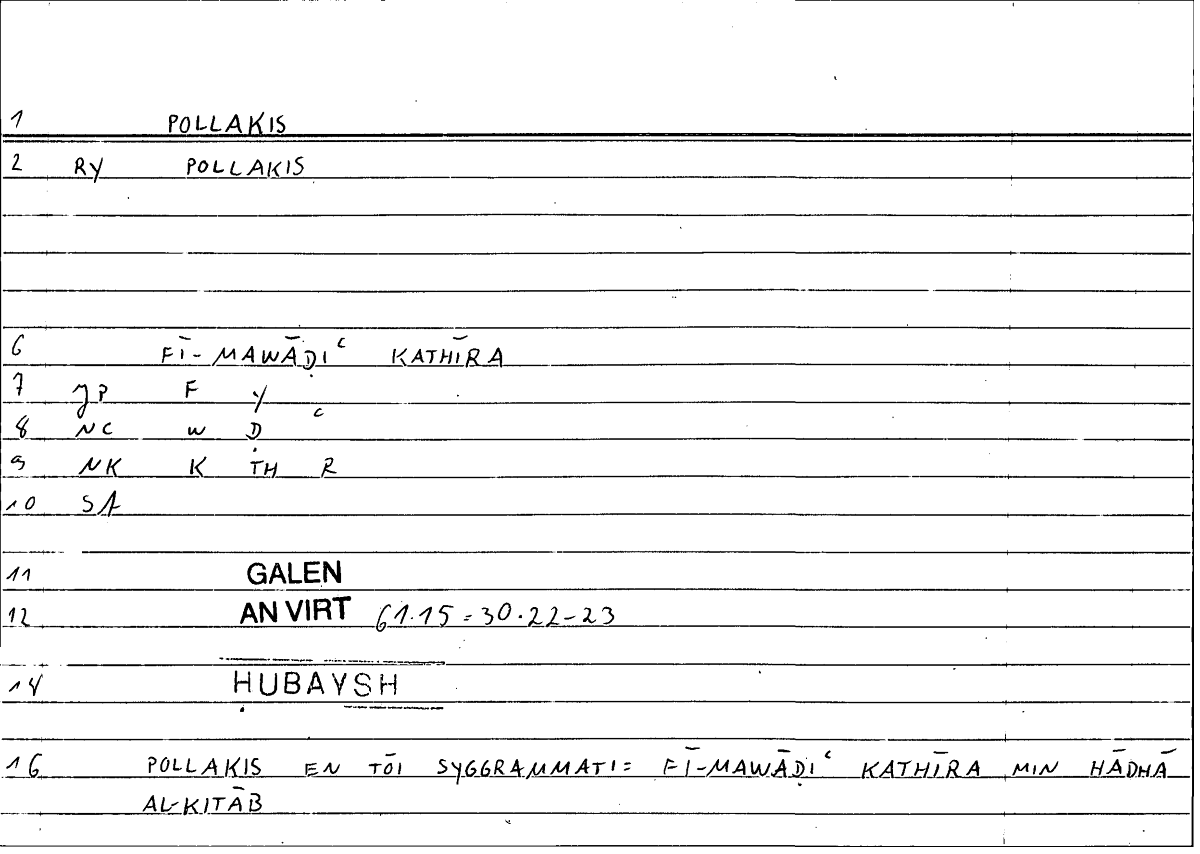 1 POLLAKIS
2 RY POLLAKIS
6 FĪ-MAWĀḌIʿ KATHĪRA
7 JP F Y
8 NC W Ḍ ʿ
9 NK K TH R
10 SA
11 GALEN
12 AN VIRT 61.15 = 30.22-23
14 ḤUBAYSH
16 POLLAKIS EN TŌI SYGGRAMMATI = FĪ-MAWĀḌIʿ KATHĪRA MIN HĀDHĀ
AL-KITĀB